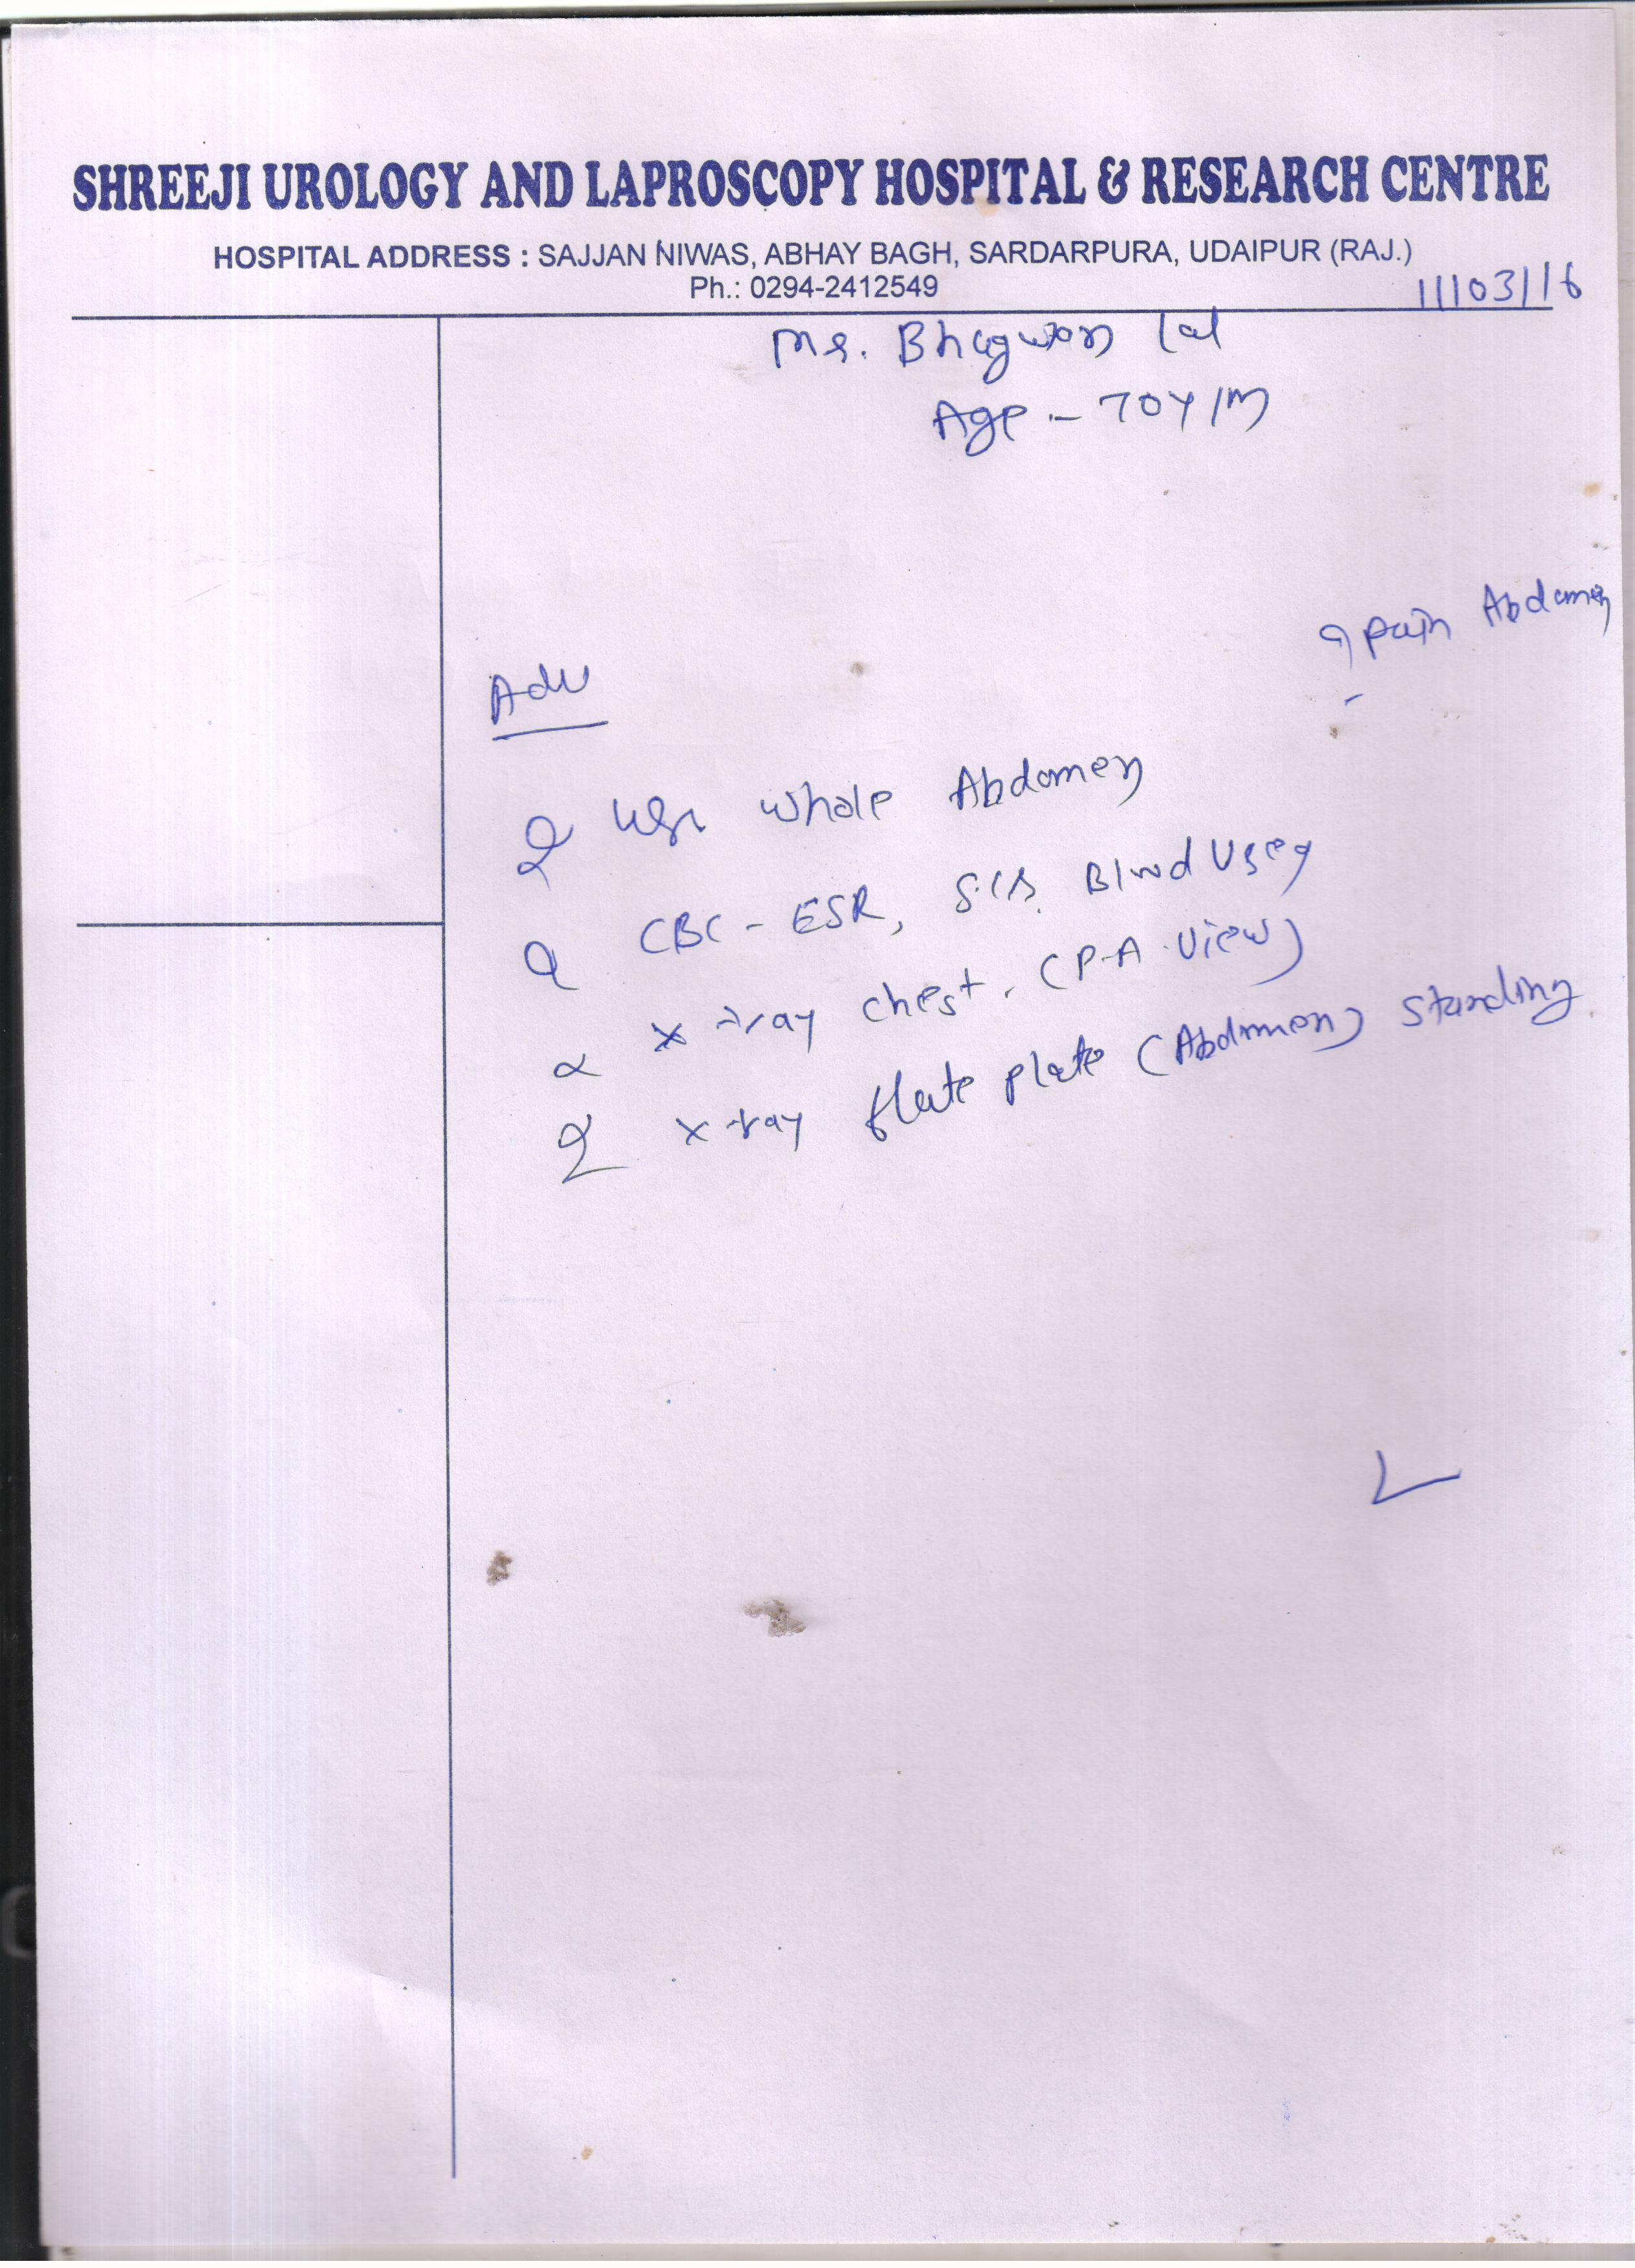 SHREEJI UROLOGY AND LAPROSCOPY HOSPITAL & RESEARCH CENTRE
HOSPITAL ADDRESS : SAJJAN NIWAS, ABHAY BAGH, SARDARPURA, UDAIPUR (RAJ.)
Ph.: 0294-2412549
11/03/16
Mr. Bhagwan lal
Age - 70Y/M
pain Abdomen
Adv
whole Abdomen
CBC - ESR, Blood Urea
X-ray chest. (P-A view)
X-ray flate plate (Abdomen) standing